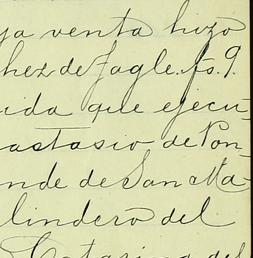 ya venta hizo
chez de Jagle. fs. 9.
ida que ejecu-
astasio de Pon-
nde de San Ma-
lindero del
Catarina del